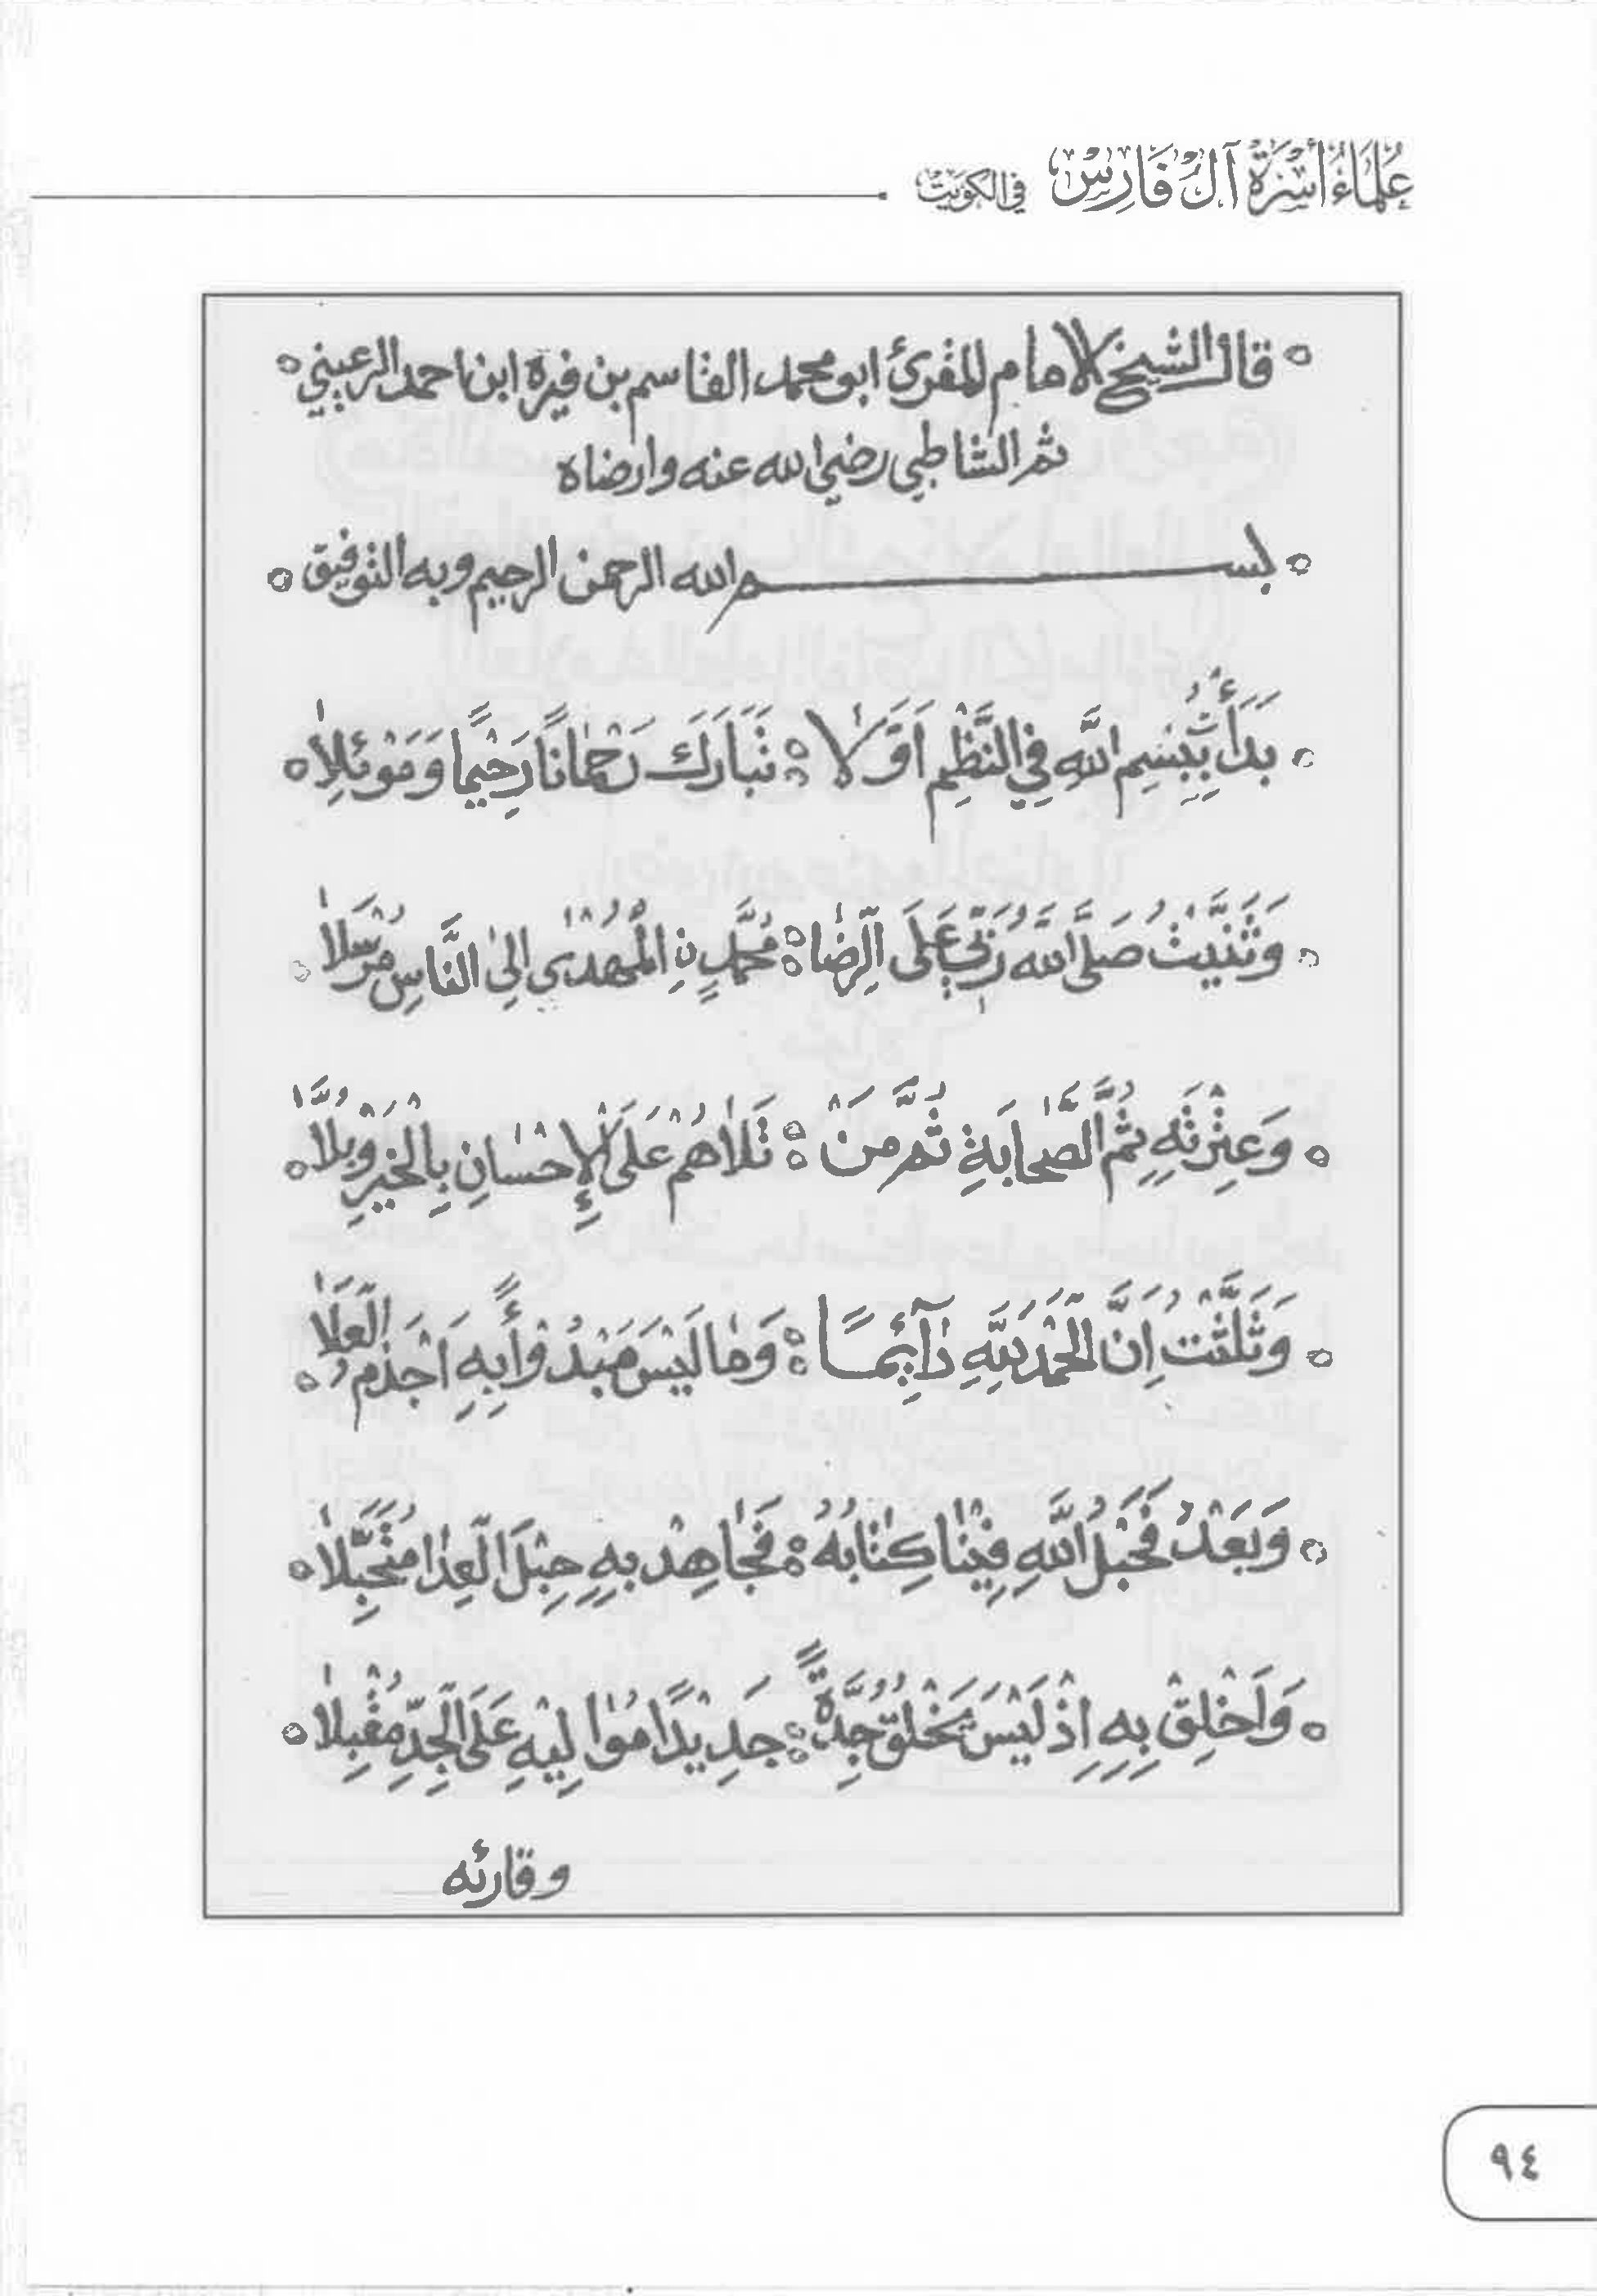 عُلَمَاءُ أُسْرَةِ آلِ فَارِسْ فِي الكُوَيْت
قال الشيخ الامام المقرئ ابو محمد القاسم بن فيره ابن احمد الرعيني
ثم الشاطبي رضي الله عنه وارضاه
بسم الله الرحمن الرحيم وبه التوفيق
بَدَأْتُ بِبِسْمِ اللَّهِ فِي النَّظْمِ اَوَّلَا ؞ تَبَارَكَ رَحْمَانًا رَحِيْمًا وَمَوْئِلاٰ
وَثَنَّيْتُ صَلَّى اللَّهُ رَبِّي عَلَى الرِّضٰا ؞ مُحَمَّدٍ نِ الْمُهْدٰى اِلىٰ النَّاسِ مُرْسَلاٰ
وَعِتْرَتِهِ ثُمَّ الصَّحٰابَةِ ثُمَّ مَنْ ؞ تَلاٰهُمْ عَلَى الْإِحْسٰانِ بِالْخَيْرِ وُبَّلاٰ
وَثَلَّثْتُ اِنَّ الْحَمْدَ لِلَّهِ دٰآئِمًا ؞ وَمٰا لَيْسَ مَبْدُوْأً بِهِ اَجْذَمُ الْعَلاٰ
وَبَعْدُ فَحَبْلُ اللَّهِ فِيْنٰا كِتٰابُهُ ؞ فَجٰاهِدْ بِهِ حِبْلَ الْعِدٰا مُتَحَبِّلاٰ
وَاَخْلِقْ بِهِ اِذْ لَيْسَ يَخْلُقُ جِدَّةً ؞ جَدِيْدًا مُوٰالِيْهِ عَلَى الْجِدِّ مُقْبِلاٰ
وقارئه
٩٤